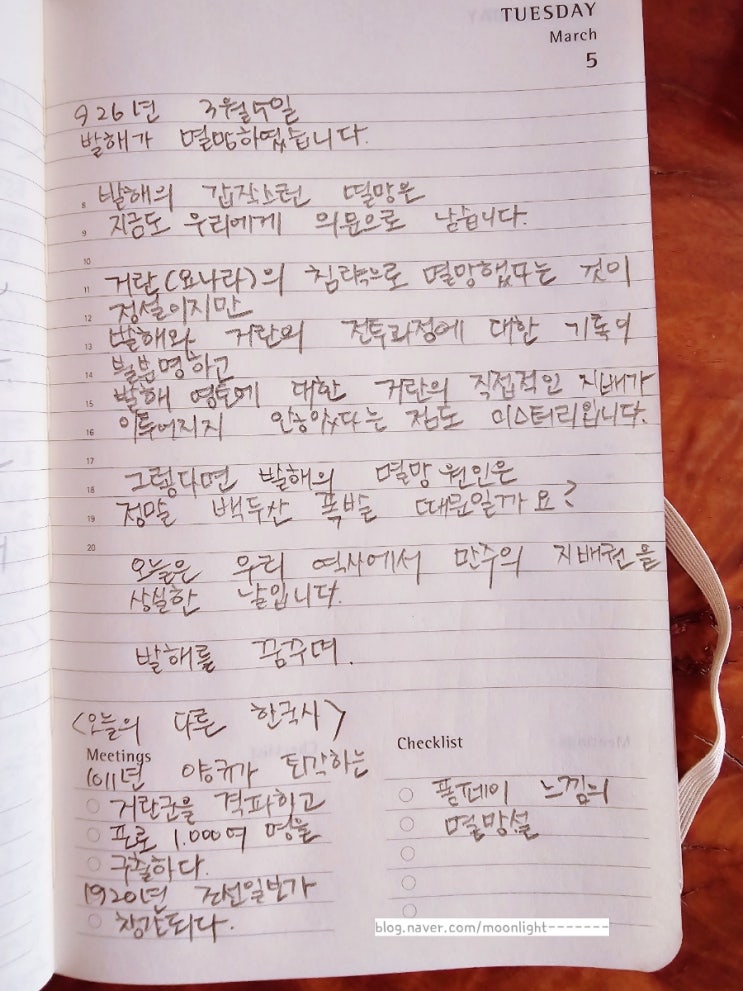 TUESDAY
March
5
926년 3월5일
발해가 멸망하였습니다.
8 발해의 갑작스런 멸망은
9 지금도 우리에게 의문으로 남습니다.
10
11 거란(요나라)의 침략으로 멸망했다는 것이
12 정설이지만
13 발해와 거란의 전투과정에 대한 기록이
14 불분명하고
15 발해 영토에 대한 거란의 직접적인 지배가
16 이루어지지 않았다는 점도 미스터리입니다.
17
18 그렇다면 발해의 멸망 원인은
19 정말 백두산 폭발 때문일까요?
20
오늘은 우리 역사에서 만주의 지배권을
상실한 날입니다.
발해를 꿈꾸며.
<오늘의 다른 한국사>
Meetings
1011년 양규가 퇴각하는
거란군을 격파하고
포로 1.000여 명을
구출하다.
1920년 조선일보가
창간되다.
Checklist
폼페이 느낌의
멸망설
blog.naver.com/moonlight-------